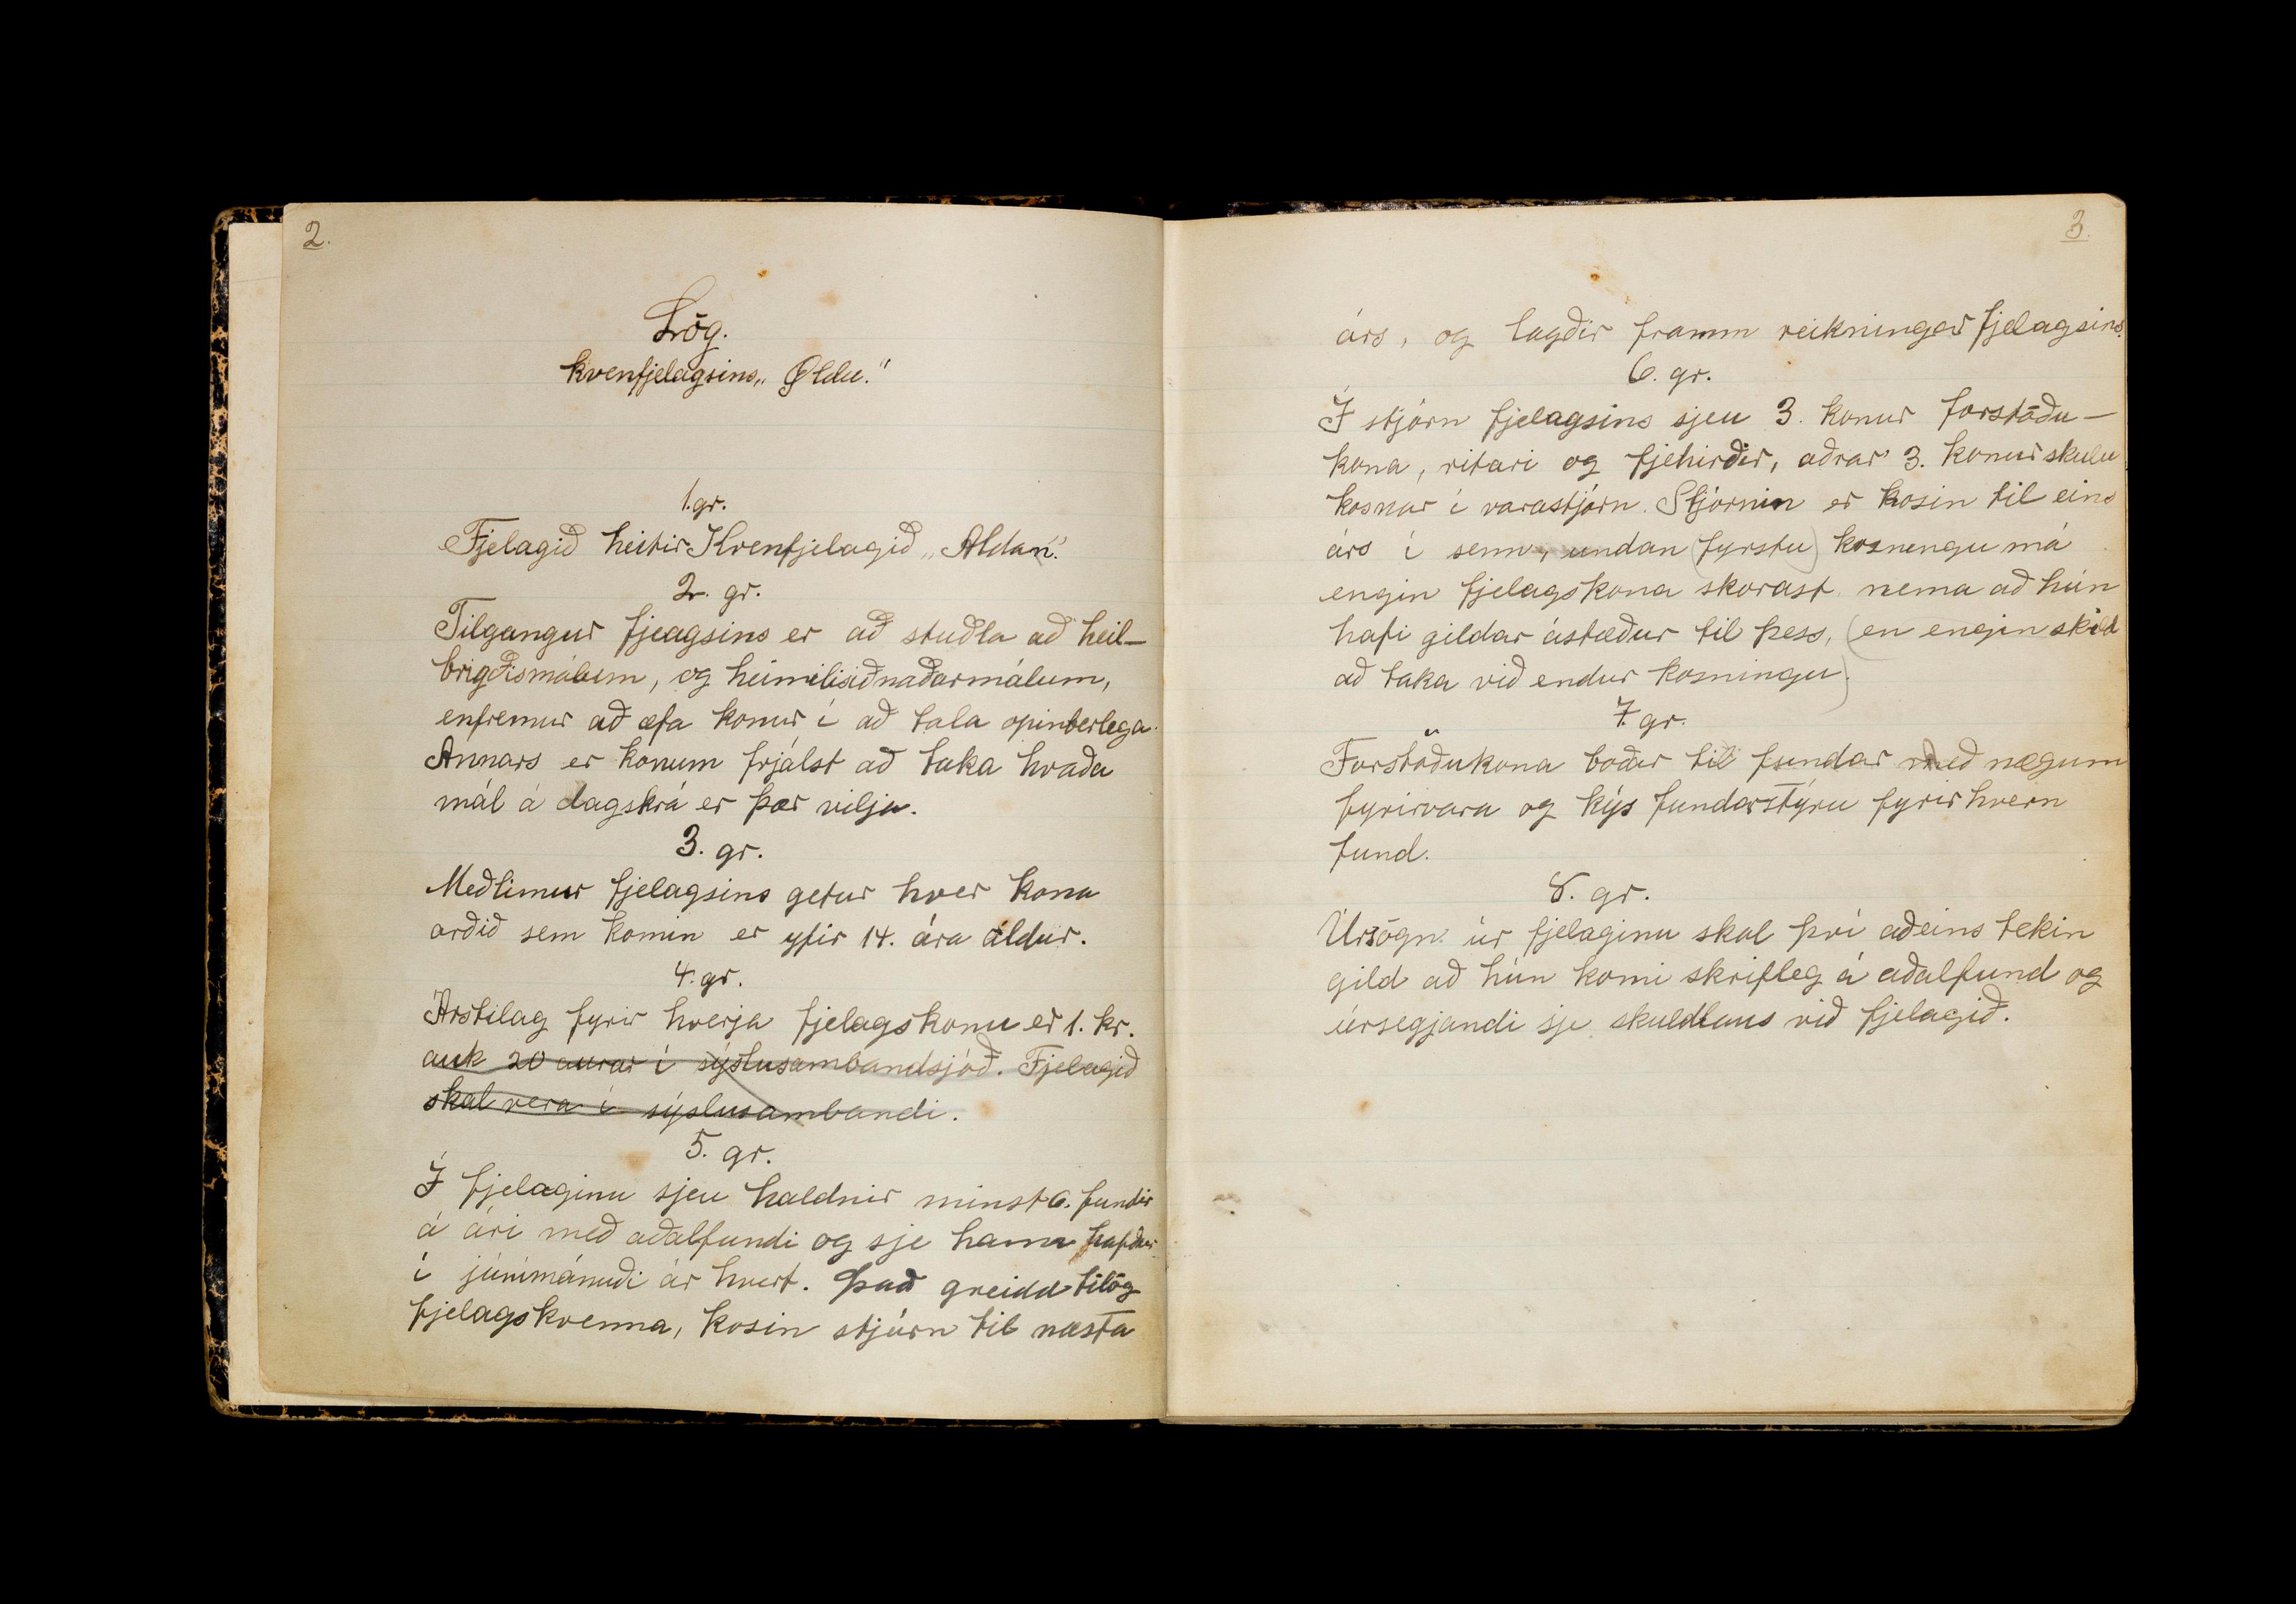 2.
Lög.
kvenfjelagsins „Øldu."
1. gr.
Fjelagið heitir Kvenfjelagið „Aldan".
2. gr.
Tilgangur fjeagsins er að stuðla að heil-
brigðismálum, og heimilisiðnaðarmálum,
enfremur að æfa konur í að tala opinberlega.
Annars er konum frjálst að taka hvaða
mál á dagskrá er þær vilja.
3. gr.
Meðlimur fjelagsins getur hver kona
orðið sem komin er yfir 14. ára aldur.
4. gr.
Árstilag fyrir hverja fjelagskonu er 1. kr.
auk 20 aurar í sýslusambandsjóð. Fjelagið
skal vera í sýslusambandi.
5. gr.
Í fjelaginu sjeu haldnir minst 6. fundir
á ári með aðalfundi og sje hann hafður
í júnímánuði ár hvert. Það greidd tilög
fjelagskvenna, kosin stjórn til næsta
3.
árs, og lagðir framm reikningar fjelagsins.
6. gr.
Í stjórn fjelagsins sjeu 3. konur forstöðu-
kona, ritari og fjehirðir, aðrar 3. konur skulu
kosnar í varastjórn. Stjórnin er kosin til eins
árs í senn, undan (fyrstu) kosnengu má
engin fjelagskona skorast nema að hún
hafi gildar ástæður til þess, (en engin skild
að taka við endur kosningu).
7. gr.
Forstöðukona boðar til fundar með nægum
fyrirvara og kýs fundarstýru fyrir hvern
fund.
8. gr.
Úrsögn úr fjelaginu skal því aðeins tekin
gild að hún komi skrifleg á aðalfund og
úrsegjandi sje skuldlaus við fjelagið.